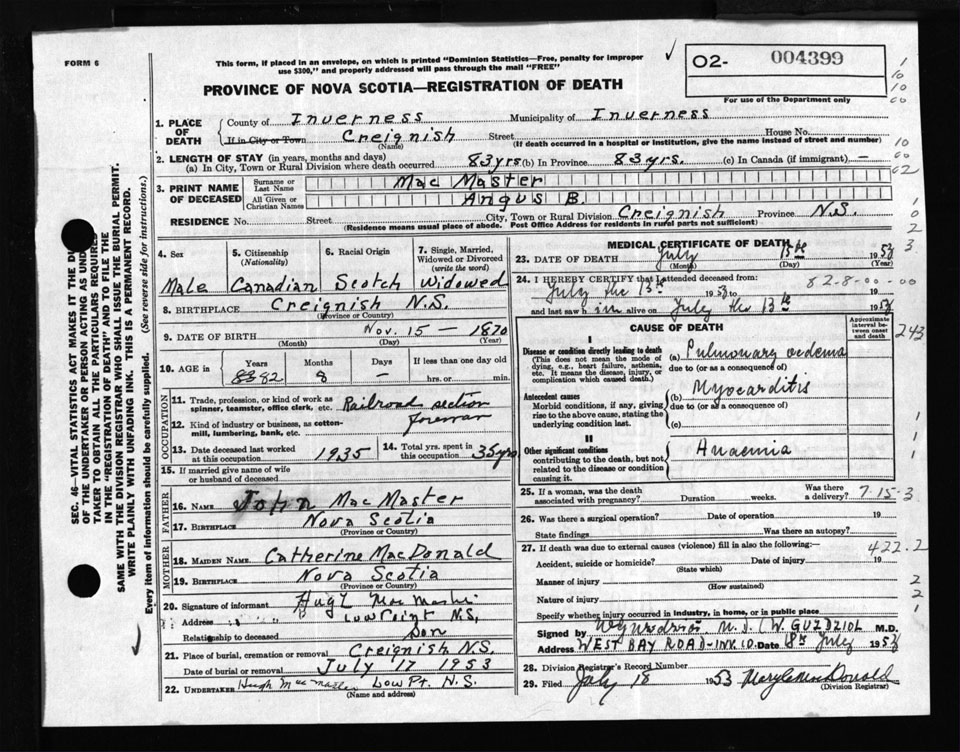 FORM 6
This form, if placed in an envelope, on which is printed "Dominion Statistics—Free, penalty for improper
use $300," and properly addressed will pass through the mail "FREE"
O2- 004399
For use of the Department only
PROVINCE OF NOVA SCOTIA—REGISTRATION OF DEATH
1. PLACE OF DEATH
County of Inverness Municipality of Inverness
If in City or Town Creignish Street House No.
(Name) (If death occurred in a hospital or institution, give the name instead of street and number)
2. LENGTH OF STAY (in years, months and days)
(a) In City, Town or Rural Division where death occurred 83 yrs (b) In Province 83 yrs. (c) In Canada (if immigrant) —
3. PRINT NAME OF DECEASED
Surname or Last Name Mac Master
All Given or Christian Names Angus B.
RESIDENCE No. Street City, Town or Rural Division Creignish Province N.S.
(Residence means usual place of abode. Post Office Address for residents in rural parts not sufficient)
4. Sex
Male
5. Citizenship (Nationality)
Canadian
6. Racial Origin
Scotch
7. Single, Married, Widowed or Divorced (write the word)
Widowed
8. BIRTHPLACE Creignish N.S.
(Province or Country)
9. DATE OF BIRTH Nov. 15 — 1870
(Month) (Day) (Year)
10. AGE in Years Months Days If less than one day old
83 82 8 - hrs. or min.
OCCUPATION
11. Trade, profession, or kind of work as
spinner, teamster, office clerk, etc. Railroad section
foreman
12. Kind of industry or business, as cotton-
mill, lumbering, bank, etc.
13. Date deceased last worked
at this occupation 1935
14. Total yrs. spent in
this occupation 35 yrs
15. If married give name of wife
or husband of deceased
FATHER
16. NAME John Mac Master
17. BIRTHPLACE Nova Scotia
(Province or Country)
MOTHER
18. MAIDEN NAME Catherine MacDonald
19. BIRTHPLACE Nova Scotia
(Province or Country)
20. Signature of informant Hugh Mac Master
Address Low Point N.S.
Relationship to deceased son
21. Place of burial, cremation or removal Creignish N.S.
Date of burial or removal July 17 1953
22. UNDERTAKER Hugh Mac Master Low Pt. N.S.
(Name and address)
MEDICAL CERTIFICATE OF DEATH
23. DATE OF DEATH July 13th 1953
(Month) (Day) (Year)
24. I HEREBY CERTIFY that I attended deceased from:
July the 13th 1953 to 19
and last saw him alive on July the 13th 1953
82-8-00-00
CAUSE OF DEATH
Approximate interval between onset and death
I
Disease or condition directly leading to death
(This does not mean the mode of
dying, e.g., heart failure, asthenia,
etc. It means the disease, injury, or
complication which caused death.)
(a) Pulmonary oedema
due to (or as a consequence of)
Antecedent causes
Morbid conditions, if any, giving
rise to the above cause, stating the
underlying condition last.
(b) Myocarditis
due to (or as a consequence of)
(c)
II
Other significant conditions
contributing to the death, but not
related to the disease or condition
causing it.
Anaemia
25. If a woman, was the death
associated with pregnancy? Duration weeks. Was there a delivery? 7-15-3
26. Was there a surgical operation? Date of operation 19
State findings Was there an autopsy?
27. If death was due to external causes (violence) fill in also the following:— 422.2
Accident, suicide or homicide? Date of injury 19
(State which)
Manner of injury
(How sustained)
Nature of injury
Specify whether injury occurred in industry, in home, or in public place
Signed by M.D. (W. GUZDZIOL M.D.
Address WEST BAY ROAD-INV. CO. Date 18th July 1953
28. Division Registrar's Record Number
29. Filed July 18 1953 Mary C. MacDonald
(Division Registrar)
243
SEC. 46—VITAL STATISTICS ACT MAKES IT THE
OF THE UNDERTAKER OR PERSON ACTING AS
TAKER TO OBTAIN ALL THE PARTICULARS REQUIRED
IN THE "REGISTRATION OF DEATH" AND TO FILE THE
SAME WITH THE DIVISION REGISTRAR WHO SHALL ISSUE THE BURIAL PERMIT.
WRITE PLAINLY WITH UNFADING INK. THIS IS A PERMANENT RECORD.
Every item of information should be carefully supplied. (See reverse side for instructions.)